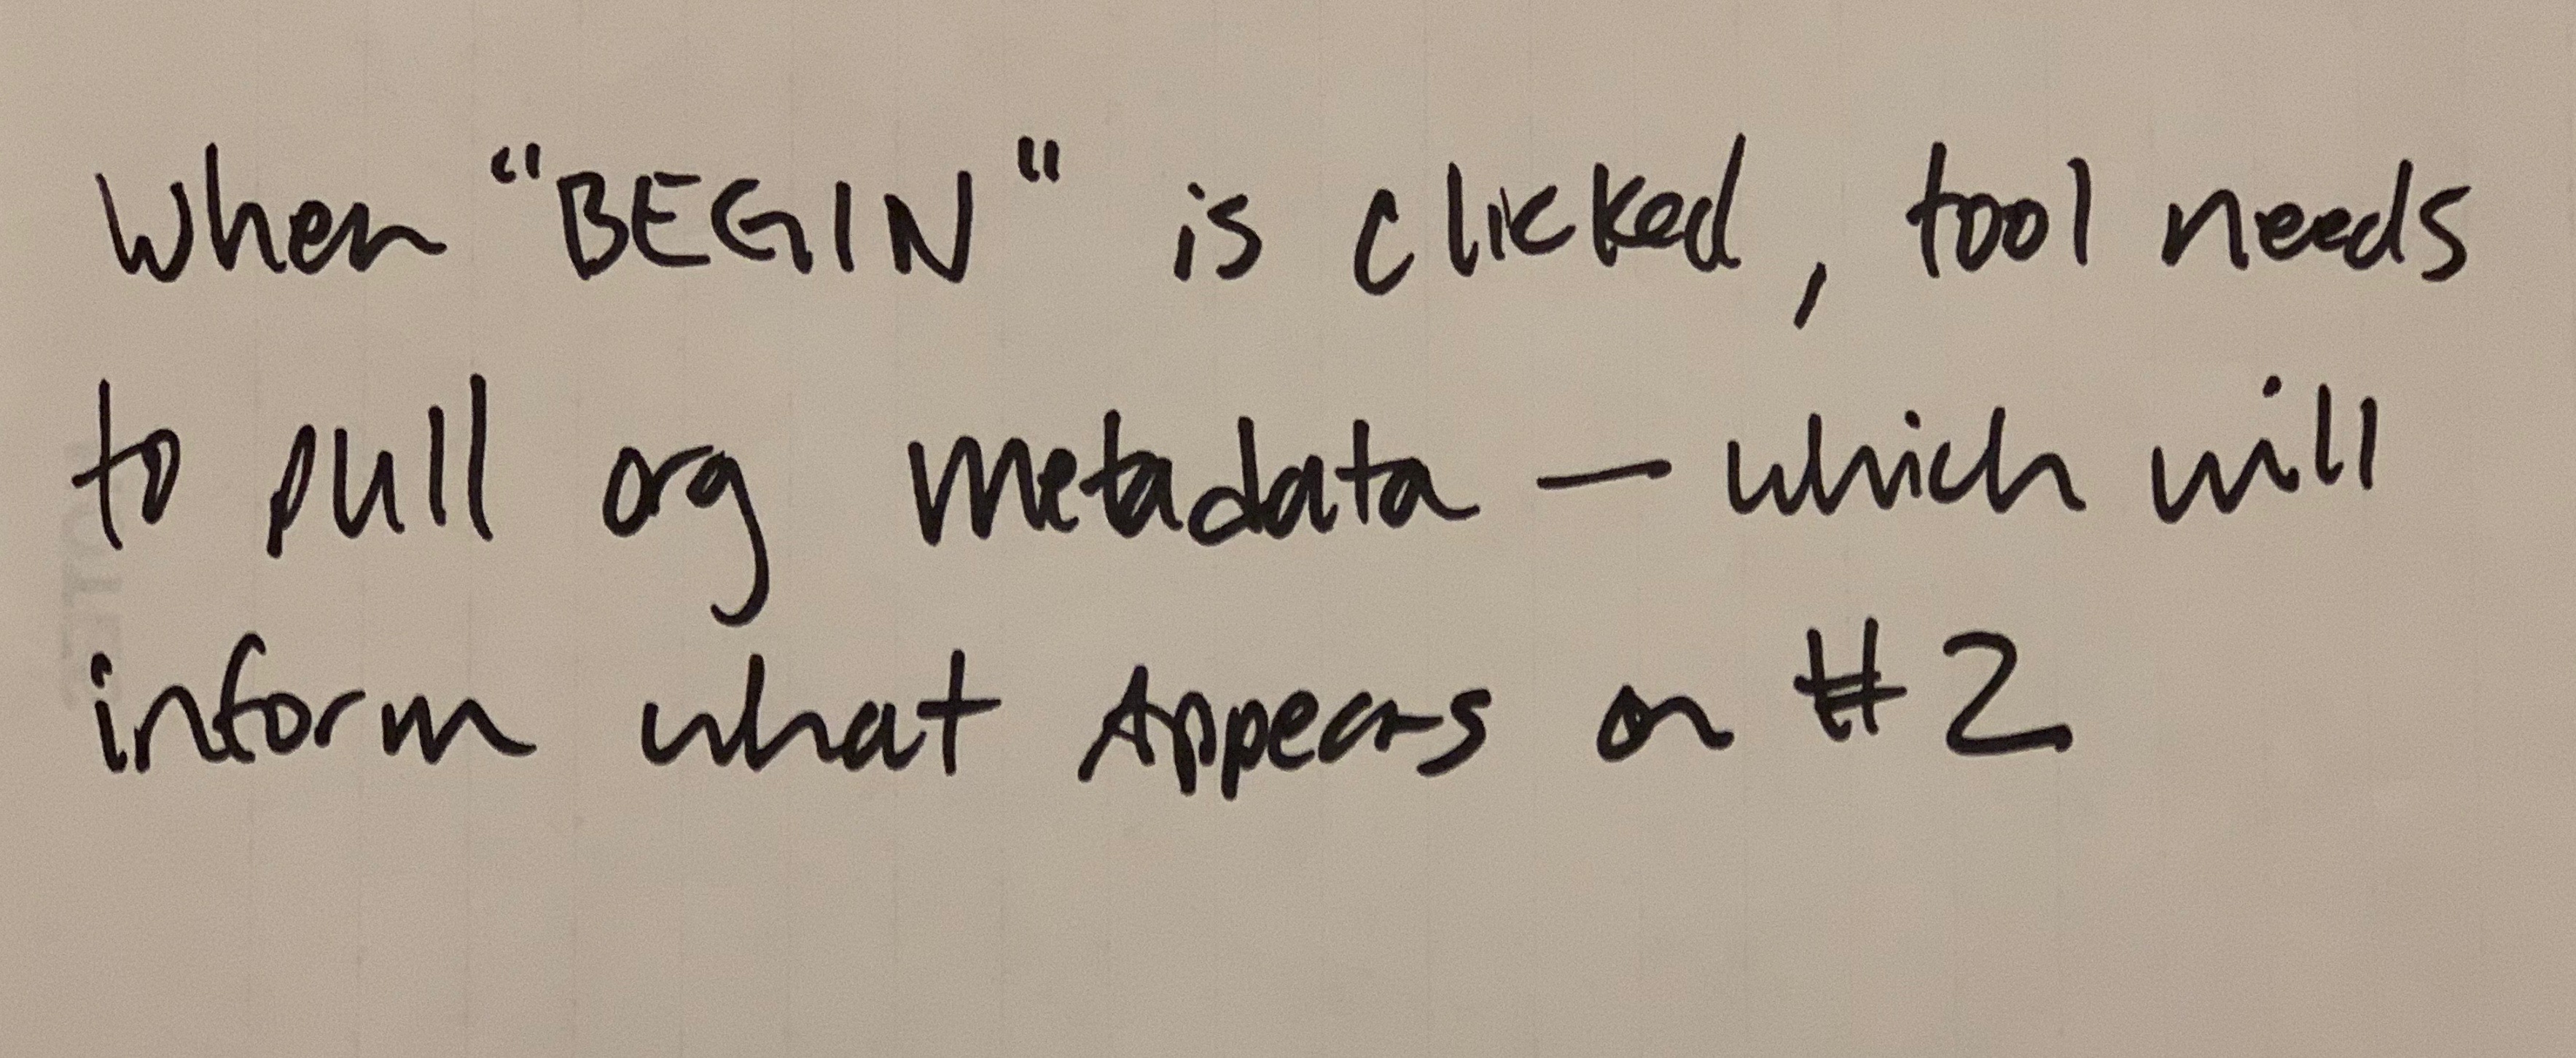 When "BEGIN" is clicked, tool needs
to pull org metadata — which will
inform what Appears on #2